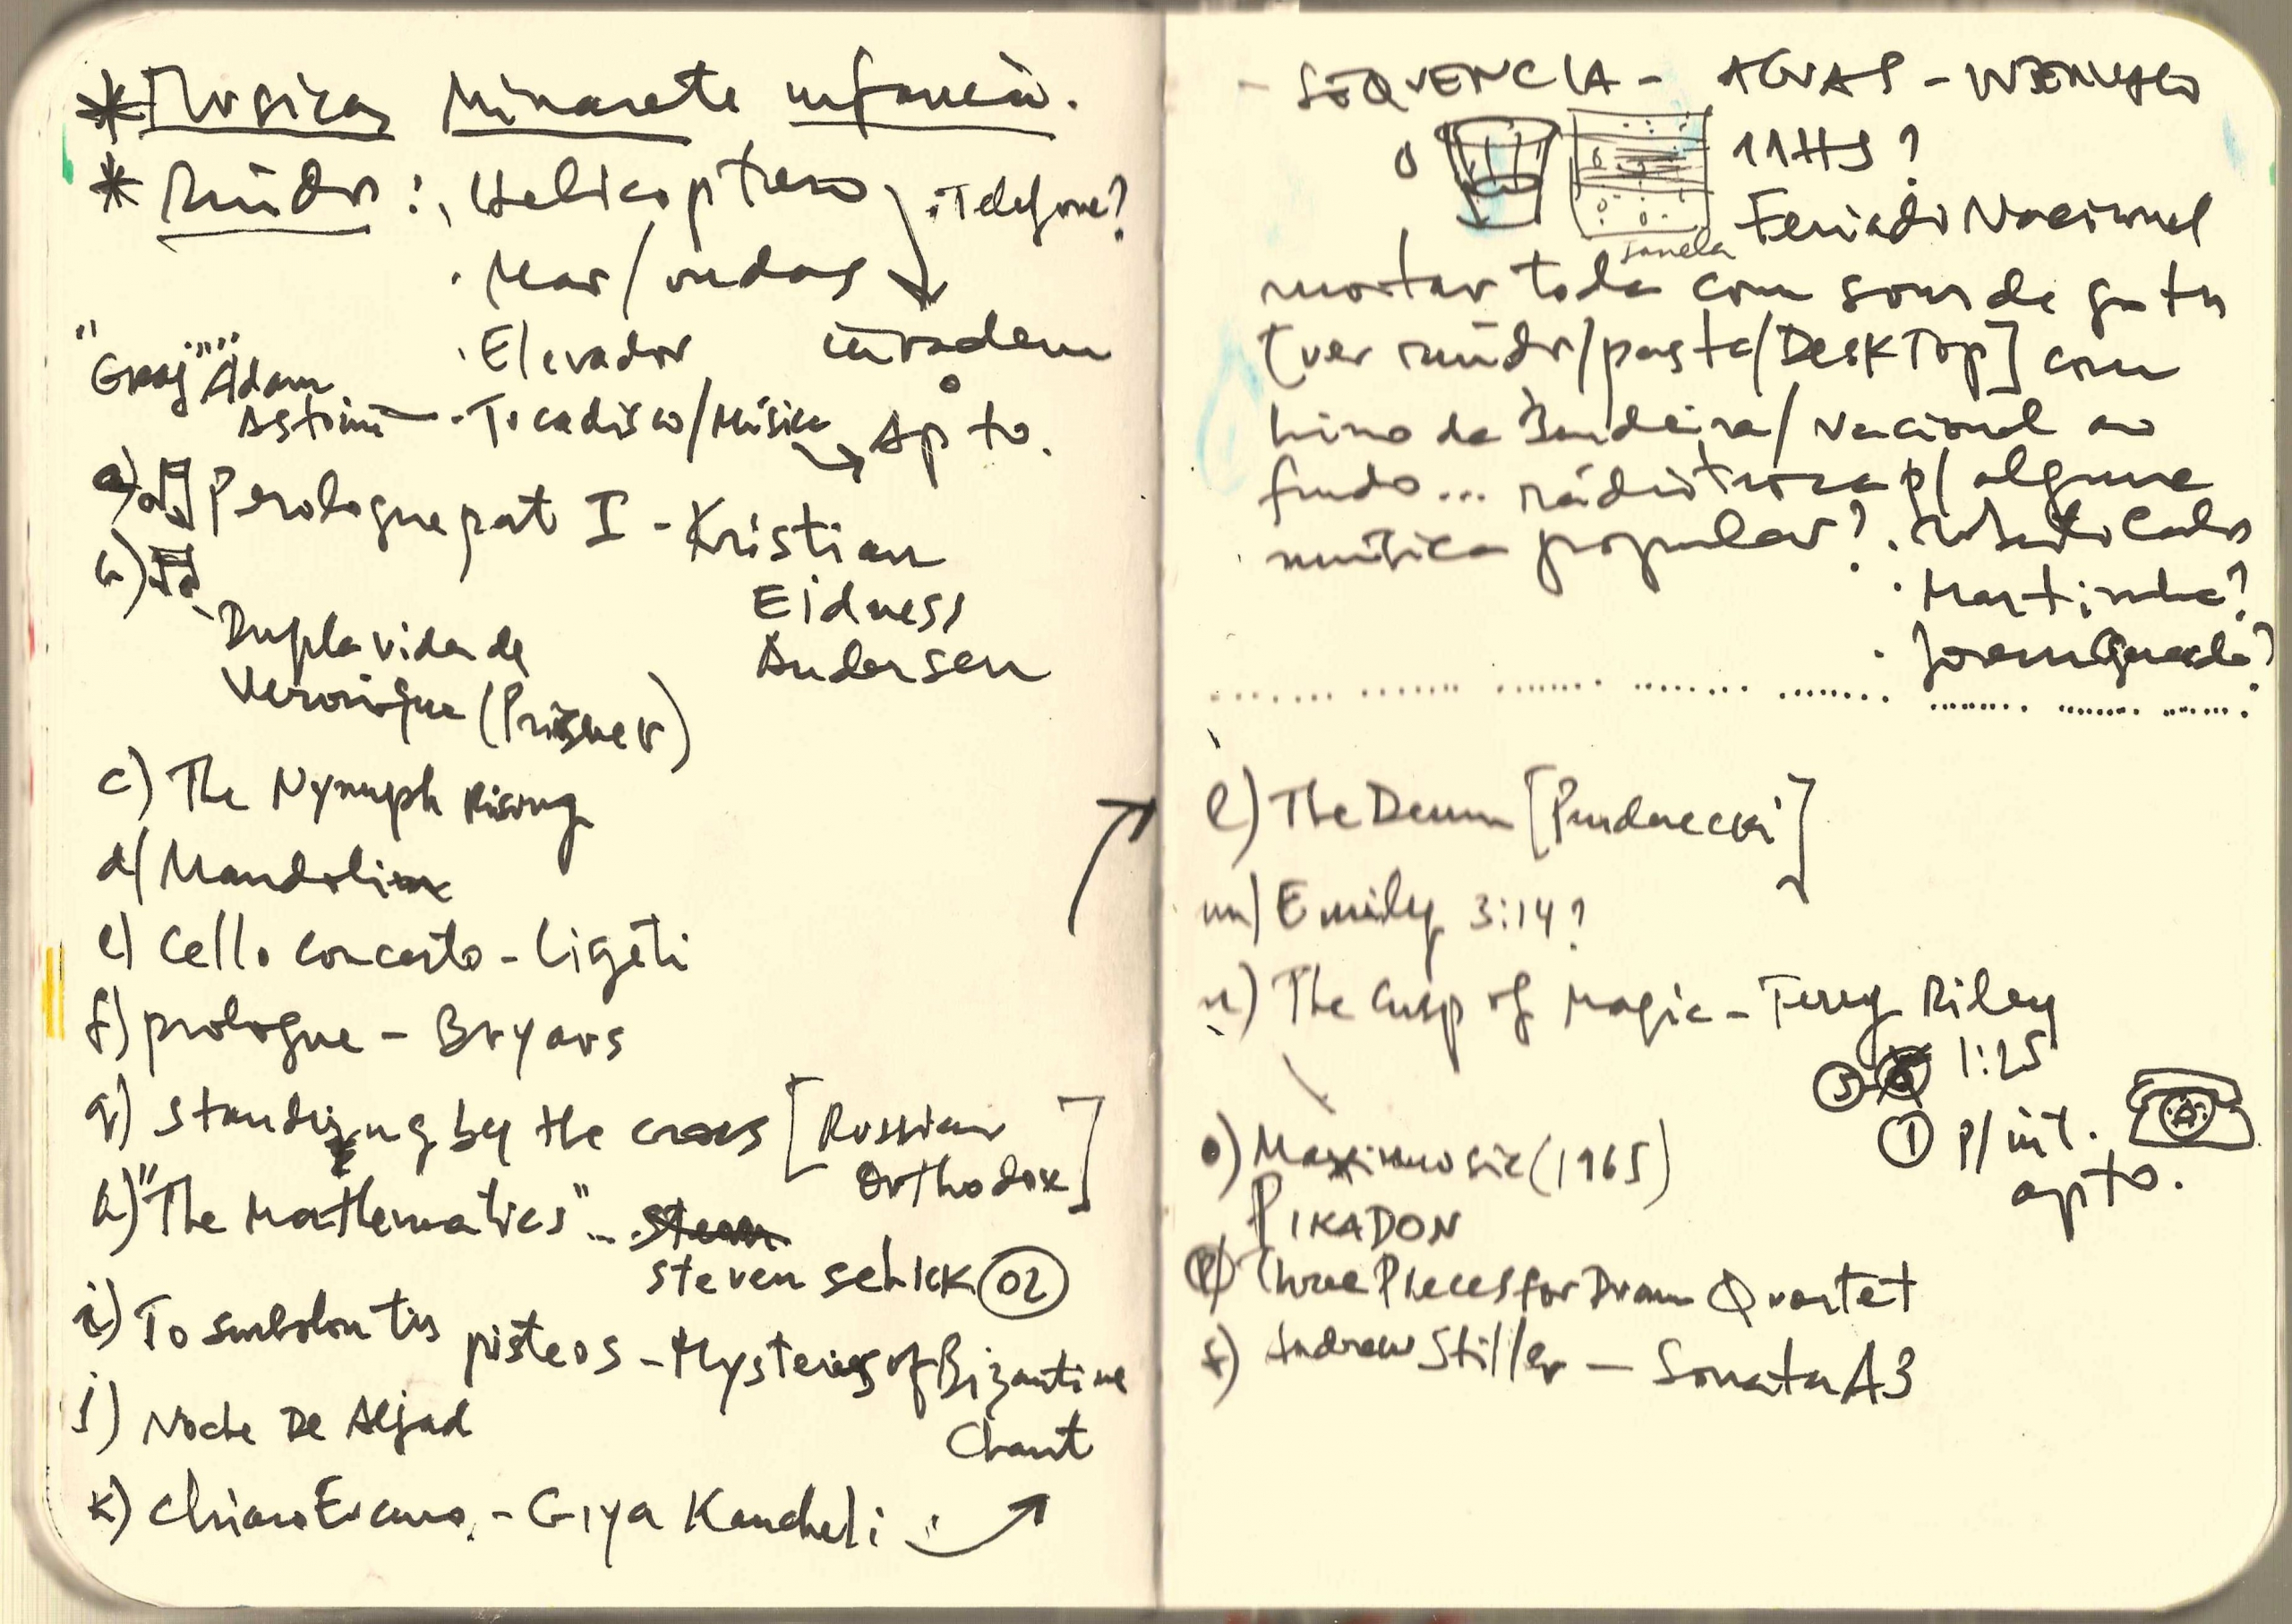 * Músicas Minarete infância.
* Ruídos: · Helicóptero · Telefone?
· Mar/ondas
· Elevador invadem
"Gray" "Adam
Astoini — · Tocadisco/Música → Apto.
a) Perologue part I - Kristian
Eidness
Andersen
b)
Dupla vida de
Veronique (Prisner)
c) The Nymph Rising
d) Mandoline
e) Cello concerto - Ligeti
f) prologue - Bryars
g) standing by the cross [Russian
Orthodox]
h) "The Mathematics" -
steven schick 02
i) To simbolon tis pisteos - Mysteries of Bizantine
Chant
j) Noche De Aljad
k) Chiaro Escuro. - Giya Kancheli
- SEQUENCIA - AGUAS -
11HS?
janela
Feriado Nacional
montar toda com sons de gotas
[ver ruídos/pasta/DESKTOP] com
hino da Bandeira/Nacional ao
fundo... rádio troca p/ alguma
música popular? · Roberto Carlos
· Martinha?
· Jovem Guarda?
l) The Deum [Penderecki]
m) Emily 3:14?
n) The Cusp of Magic - Terry Riley
3 1:25
1 p/ int.
apto.
o) Maximusic (1965)
PIKADON
p) Three Pieces for Drum Quartet
Andrew Stiller — Sonata A3